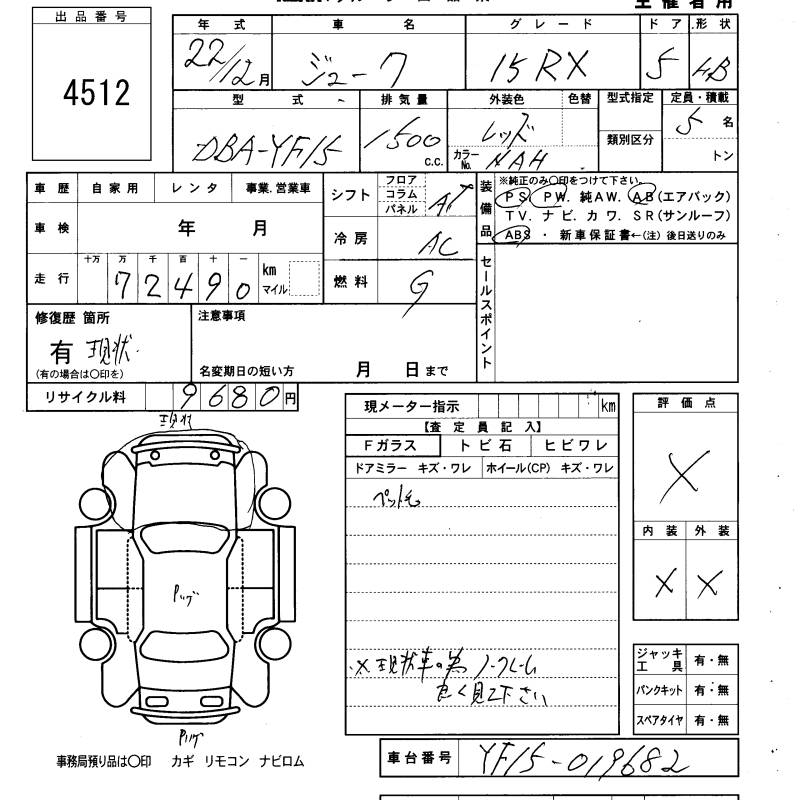 主催者用
出品番号
4512
年式 車名 グレード ドア 形状
22/12月 ジューク 15RX 5 4B
型式 排気量 外装色 色替 型式指定 定員・積載
DBA-YF15 1500 c.c. レッド 類別区分 5名
カラーNo. NAH トン
車歴 自家用 レンタ 事業.営業車
シフト フロア コラム パネル AT
装備品 ※純正のみ○印をつけて下さい。
PS. PW. 純AW. AB(エアバック)
TV. ナビ. カワ. SR(サンルーフ)
ABS ・ 新車保証書←(注) 後日送りのみ
車検 年 月
冷房 AC
走行 十万 万 千 百 十 一
72490 km マイル
燃料 G
セールスポイント
修復歴 箇所
有 現状.
(有の場合は○印を)
注意事項
名変期日の短い方 月 日まで
リサイクル料 9680円
現状
現メーター指示 km
【査定員記入】
Fガラス トビ石 ヒビワレ
ドアミラー キズ・ワレ ホイール(CP) キズ・ワレ
ペット毛
評価点
X
内装 外装
X X
Pップ
※現状車の為ノークレーム
良く見て下さい
ジャッキ工具 有・無
パンクキット 有・無
スペアタイヤ 有・無
事務局預り品は○印 カギ リモコン ナビロム
車台番号 YF15-019682